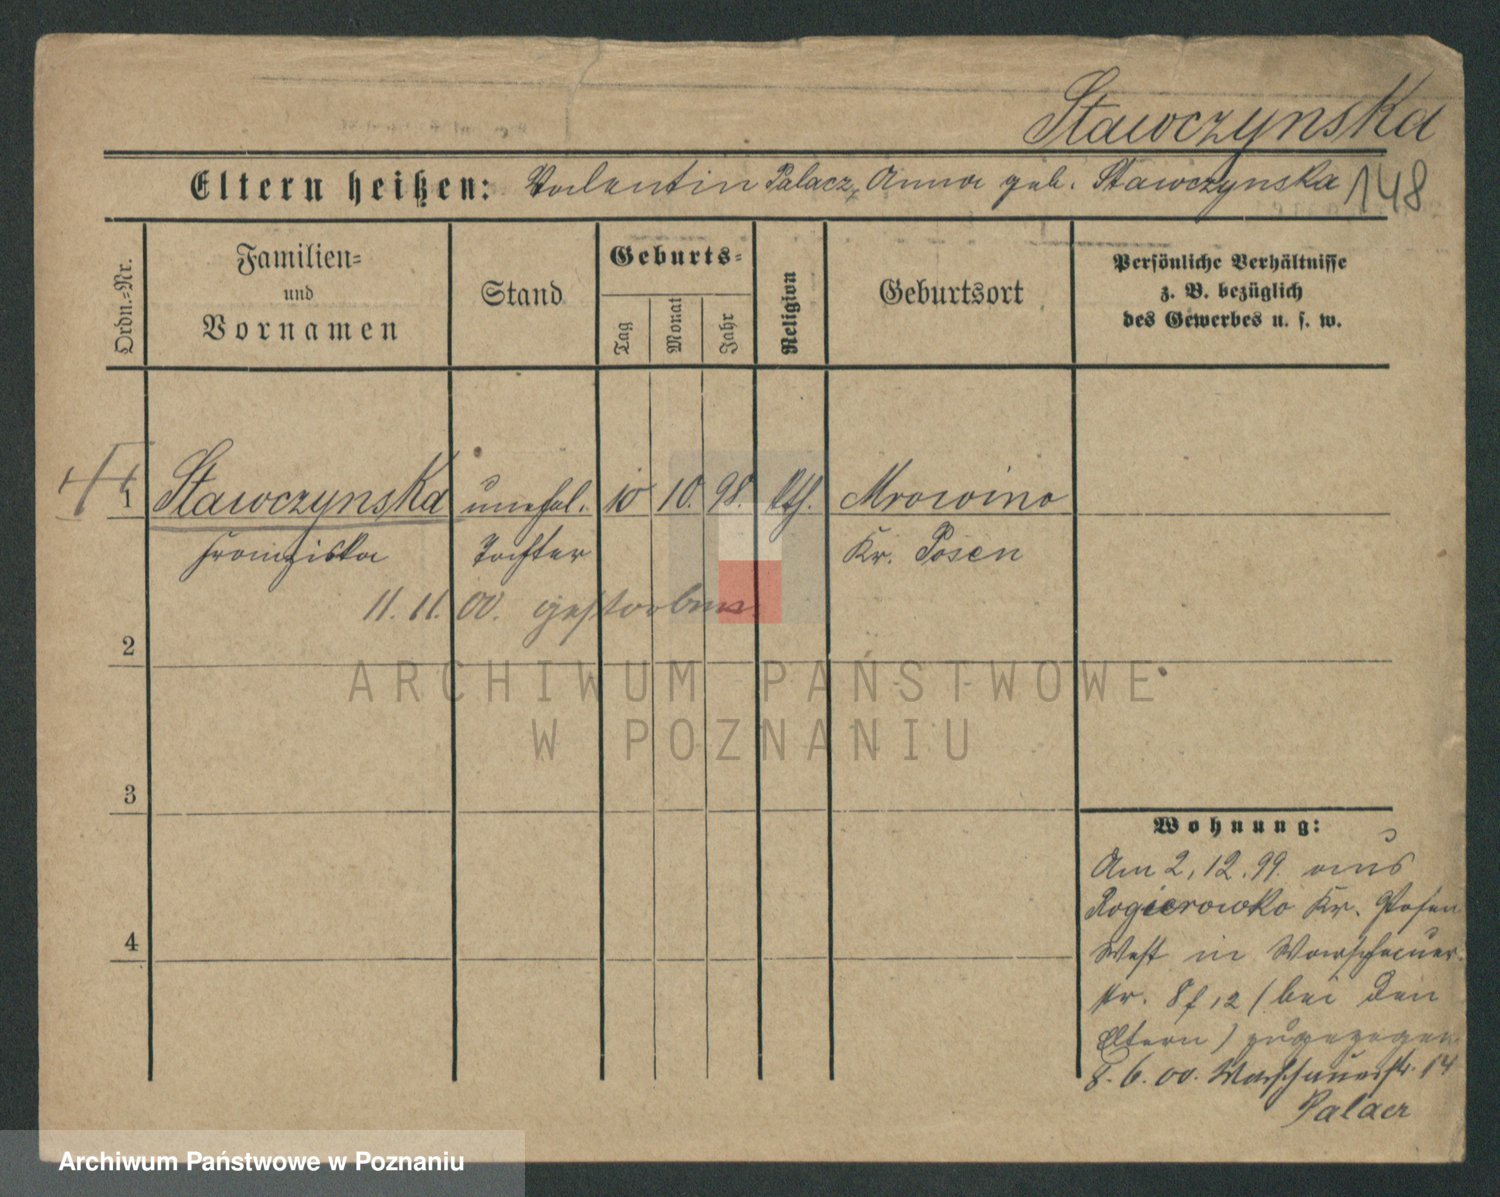 Stawczynska
Eltern heißen: Valentin Palacz, Anna geb. Stawczynska 148
Ordn.-Nr.
Familien-
und
Vornamen
Stand
Geburts-
Tag
Monat
Jahr
Religion
Geburtsort
Persönliche Verhältnisse
z. B. bezüglich
des Gewerbes u. s. w.
1 Stawczynska unehel. 10 10. 98. kth. Mrowino
Franziska Tochter Kr. Posen
11. 11. 00. gestorben.
2
3
4
Wohnung:
Am 2.12.99. aus
Rogierowko Kr. Posen
West in Warschauer-
str. 12 (bei den
Eltern) zugezogen
8.6.00. Warschauerstr. 14
Palacz
ARCHIWUM PAŃSTWOWE
W POZNANIU
Archiwum Państwowe w Poznaniu